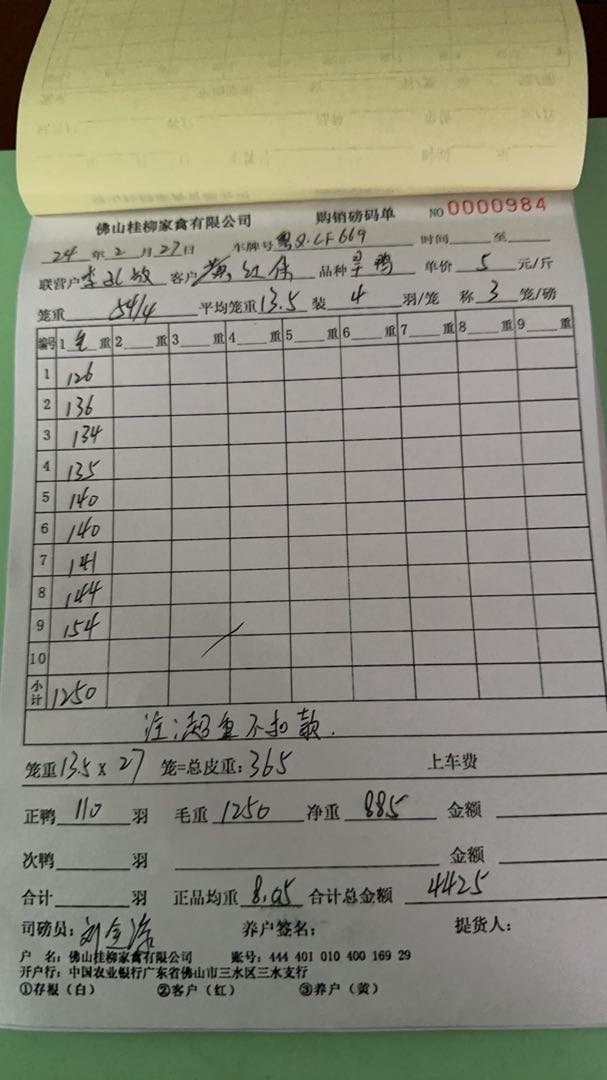 佛山桂柳家禽有限公司 购销磅码单 NO 0000984
24 年 2 月 27 日 车牌号 粤Q.CF669 时间 至
联营户 李 客户 黄红伟 品种 旱鸭 单价 5 元/斤
笼重 54/4 平均笼重 13.5 装 4 羽/笼 称 3 笼/磅
编号 1 毛 重 2 重 3 重 4 重 5 重 6 重 7 重 8 重 9 重
1 126
2 136
3 134
4 135
5 140
6 140
7 141
8 144
9 154
10
小计 1250
注:超重不扣款.
笼重 13.5 x 27 笼=总皮重: 365 上车费
正鸭 110 羽 毛重 1250 净重 885 金额
次鸭 羽 金额
合计 羽 正品均重 8.05 合计总金额 4425
司磅员: 刘 养户签名: 提货人:
户 名: 佛山桂柳家禽有限公司 账号: 444 401 010 400 169 29
开户行: 中国农业银行广东省佛山市三水区三水支行
①存根(白) ②客户(红) ③养户(黄)